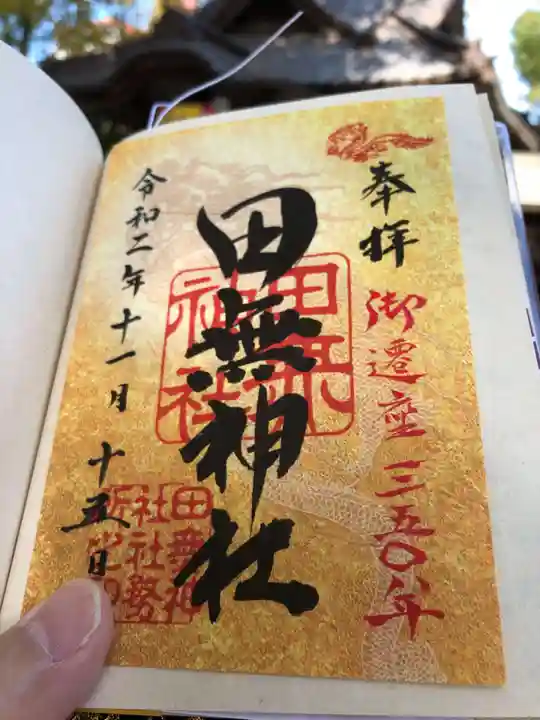 奉拝
御遷座三五〇年
田無神社
田無神社
令和二年十一月十五日
田無神
社社務
所之印